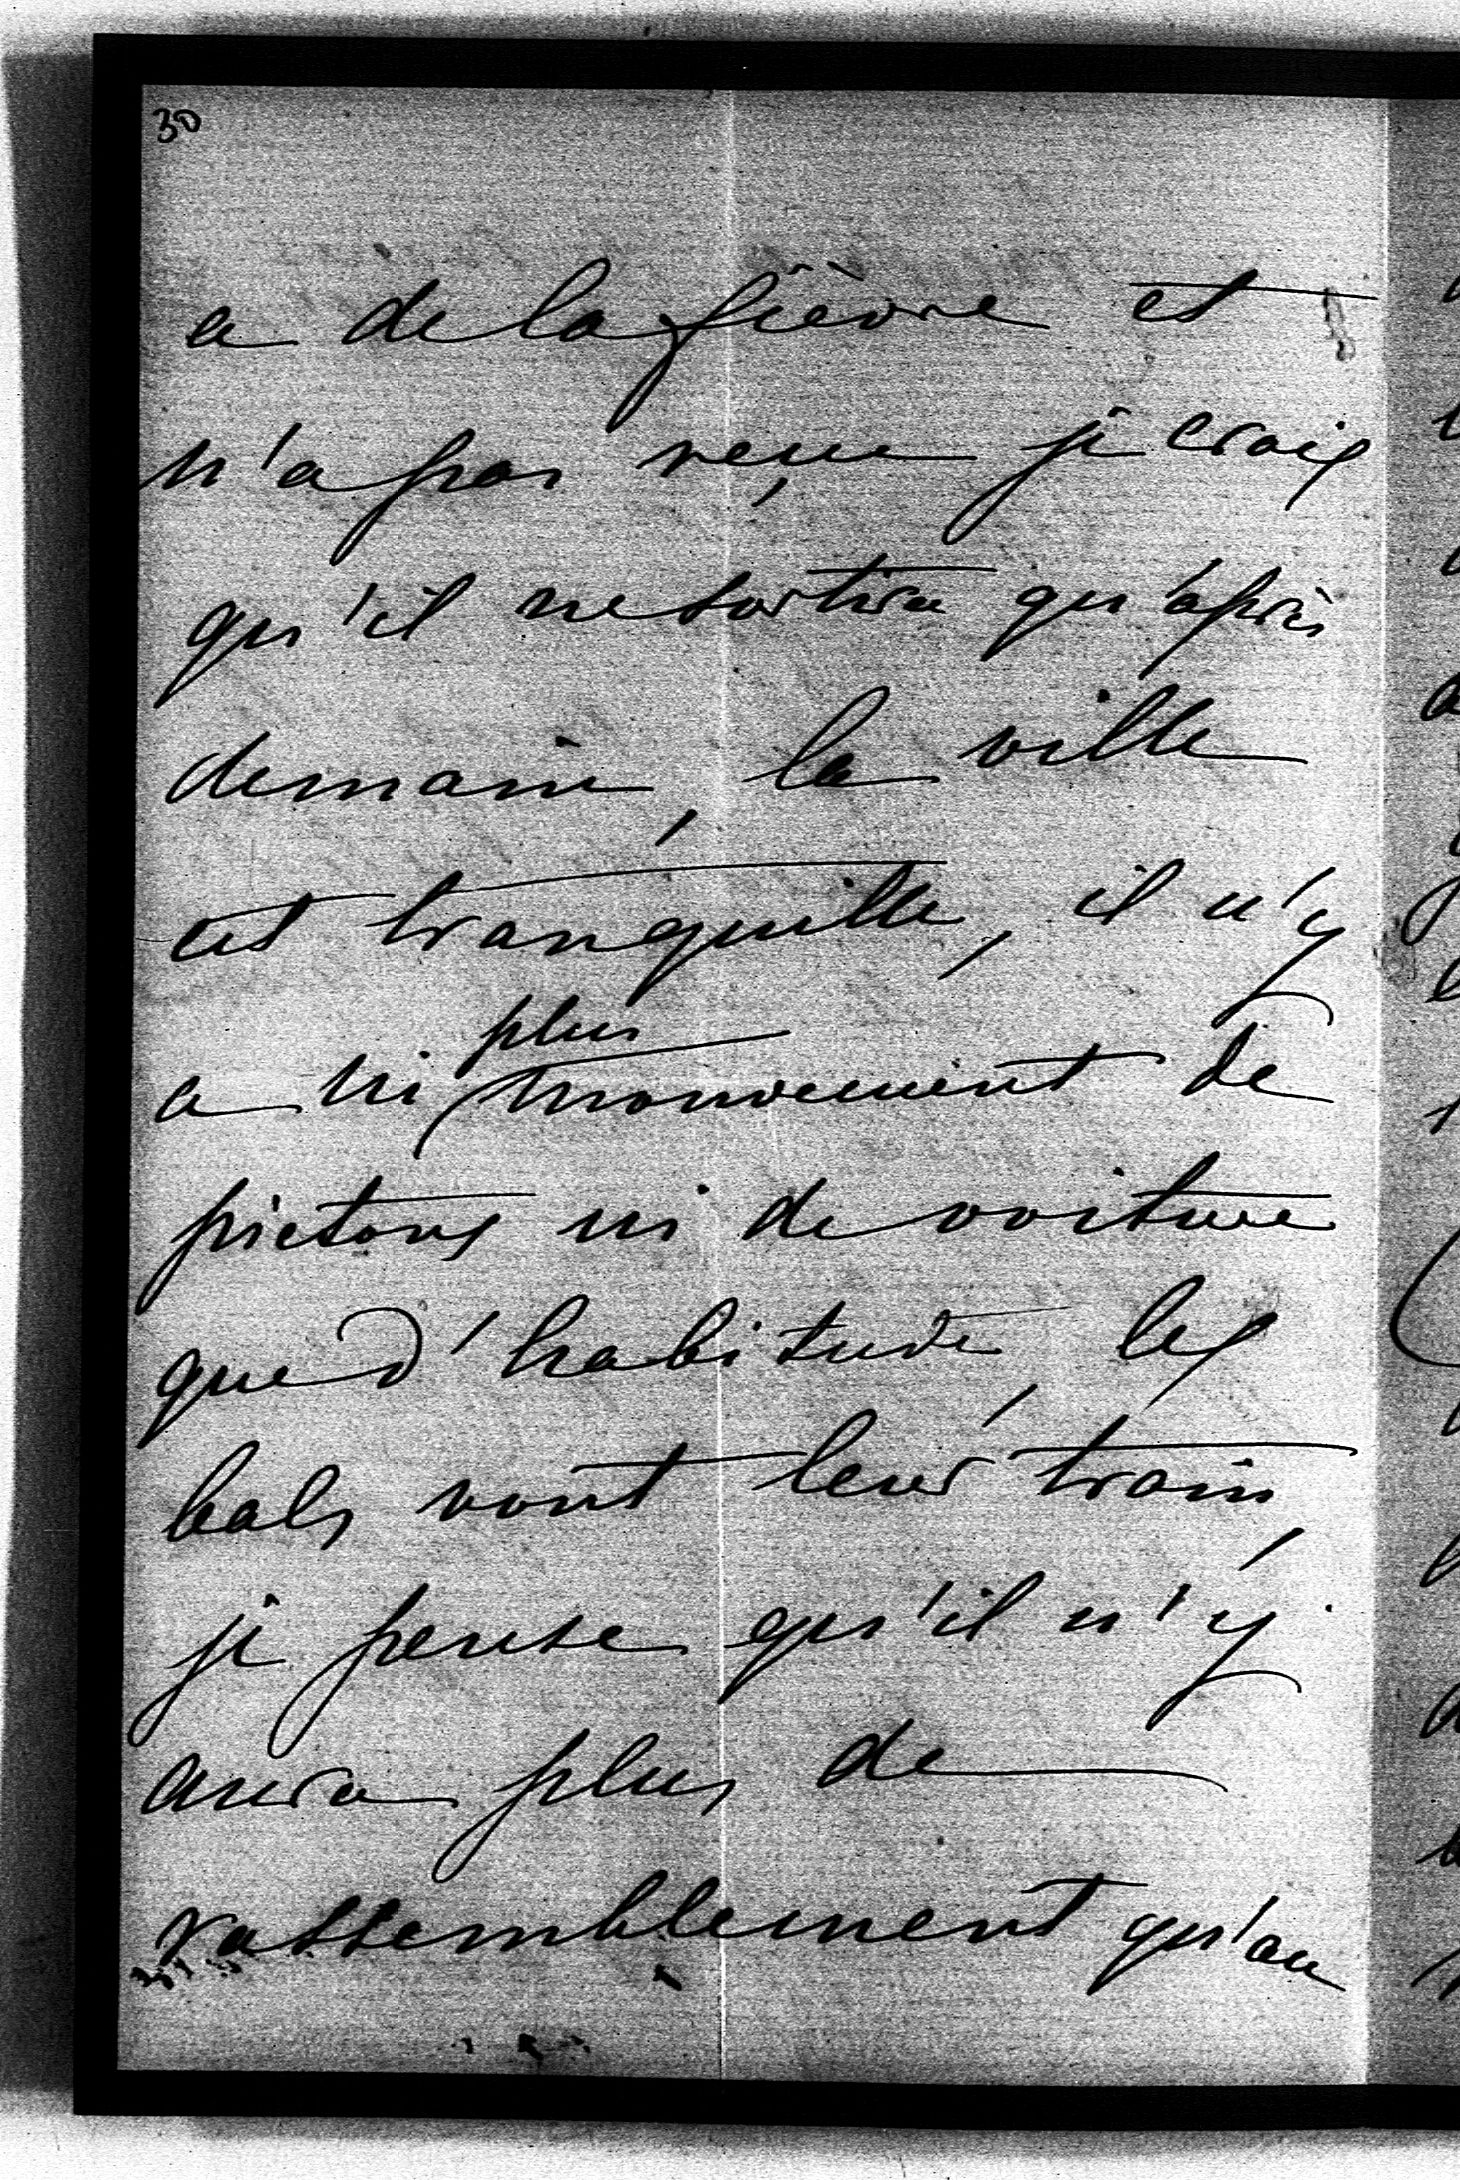 30
a de la fièvre et
n'a pas reçu je crois
qu'il ne sortira qu'après
demain, la ville
est tranquille, il n'y
a ni plus mouvement de
pietons ni de voiture
que d'habitude, les
bals vont leur train,
je pense qu'il n'y
aura plus de
rassemblement qu'au